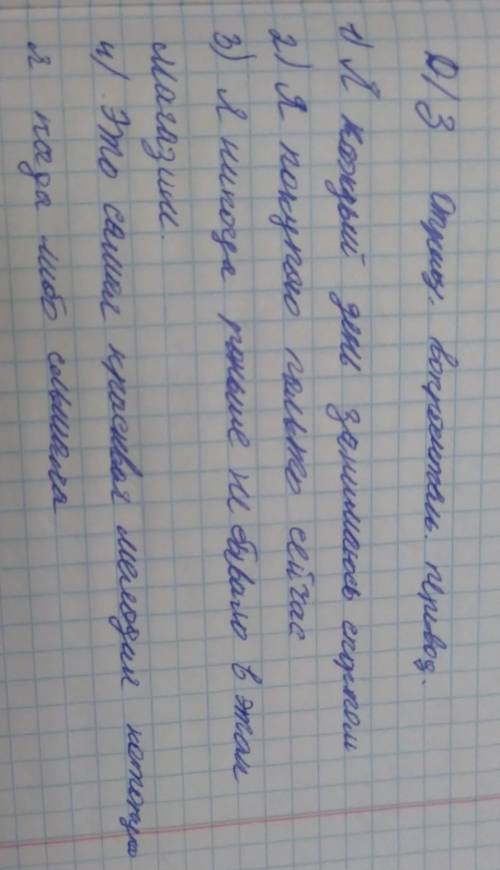 Д/З Отриц. вопросител. перевод.
1) Я каждый день занимаюсь спортом
2) Я покупаю только сейчас
3) Я никогда раньше не бывало в этом
магазин.
4) Это самая красивая мелодия которую
я когда либо слышала